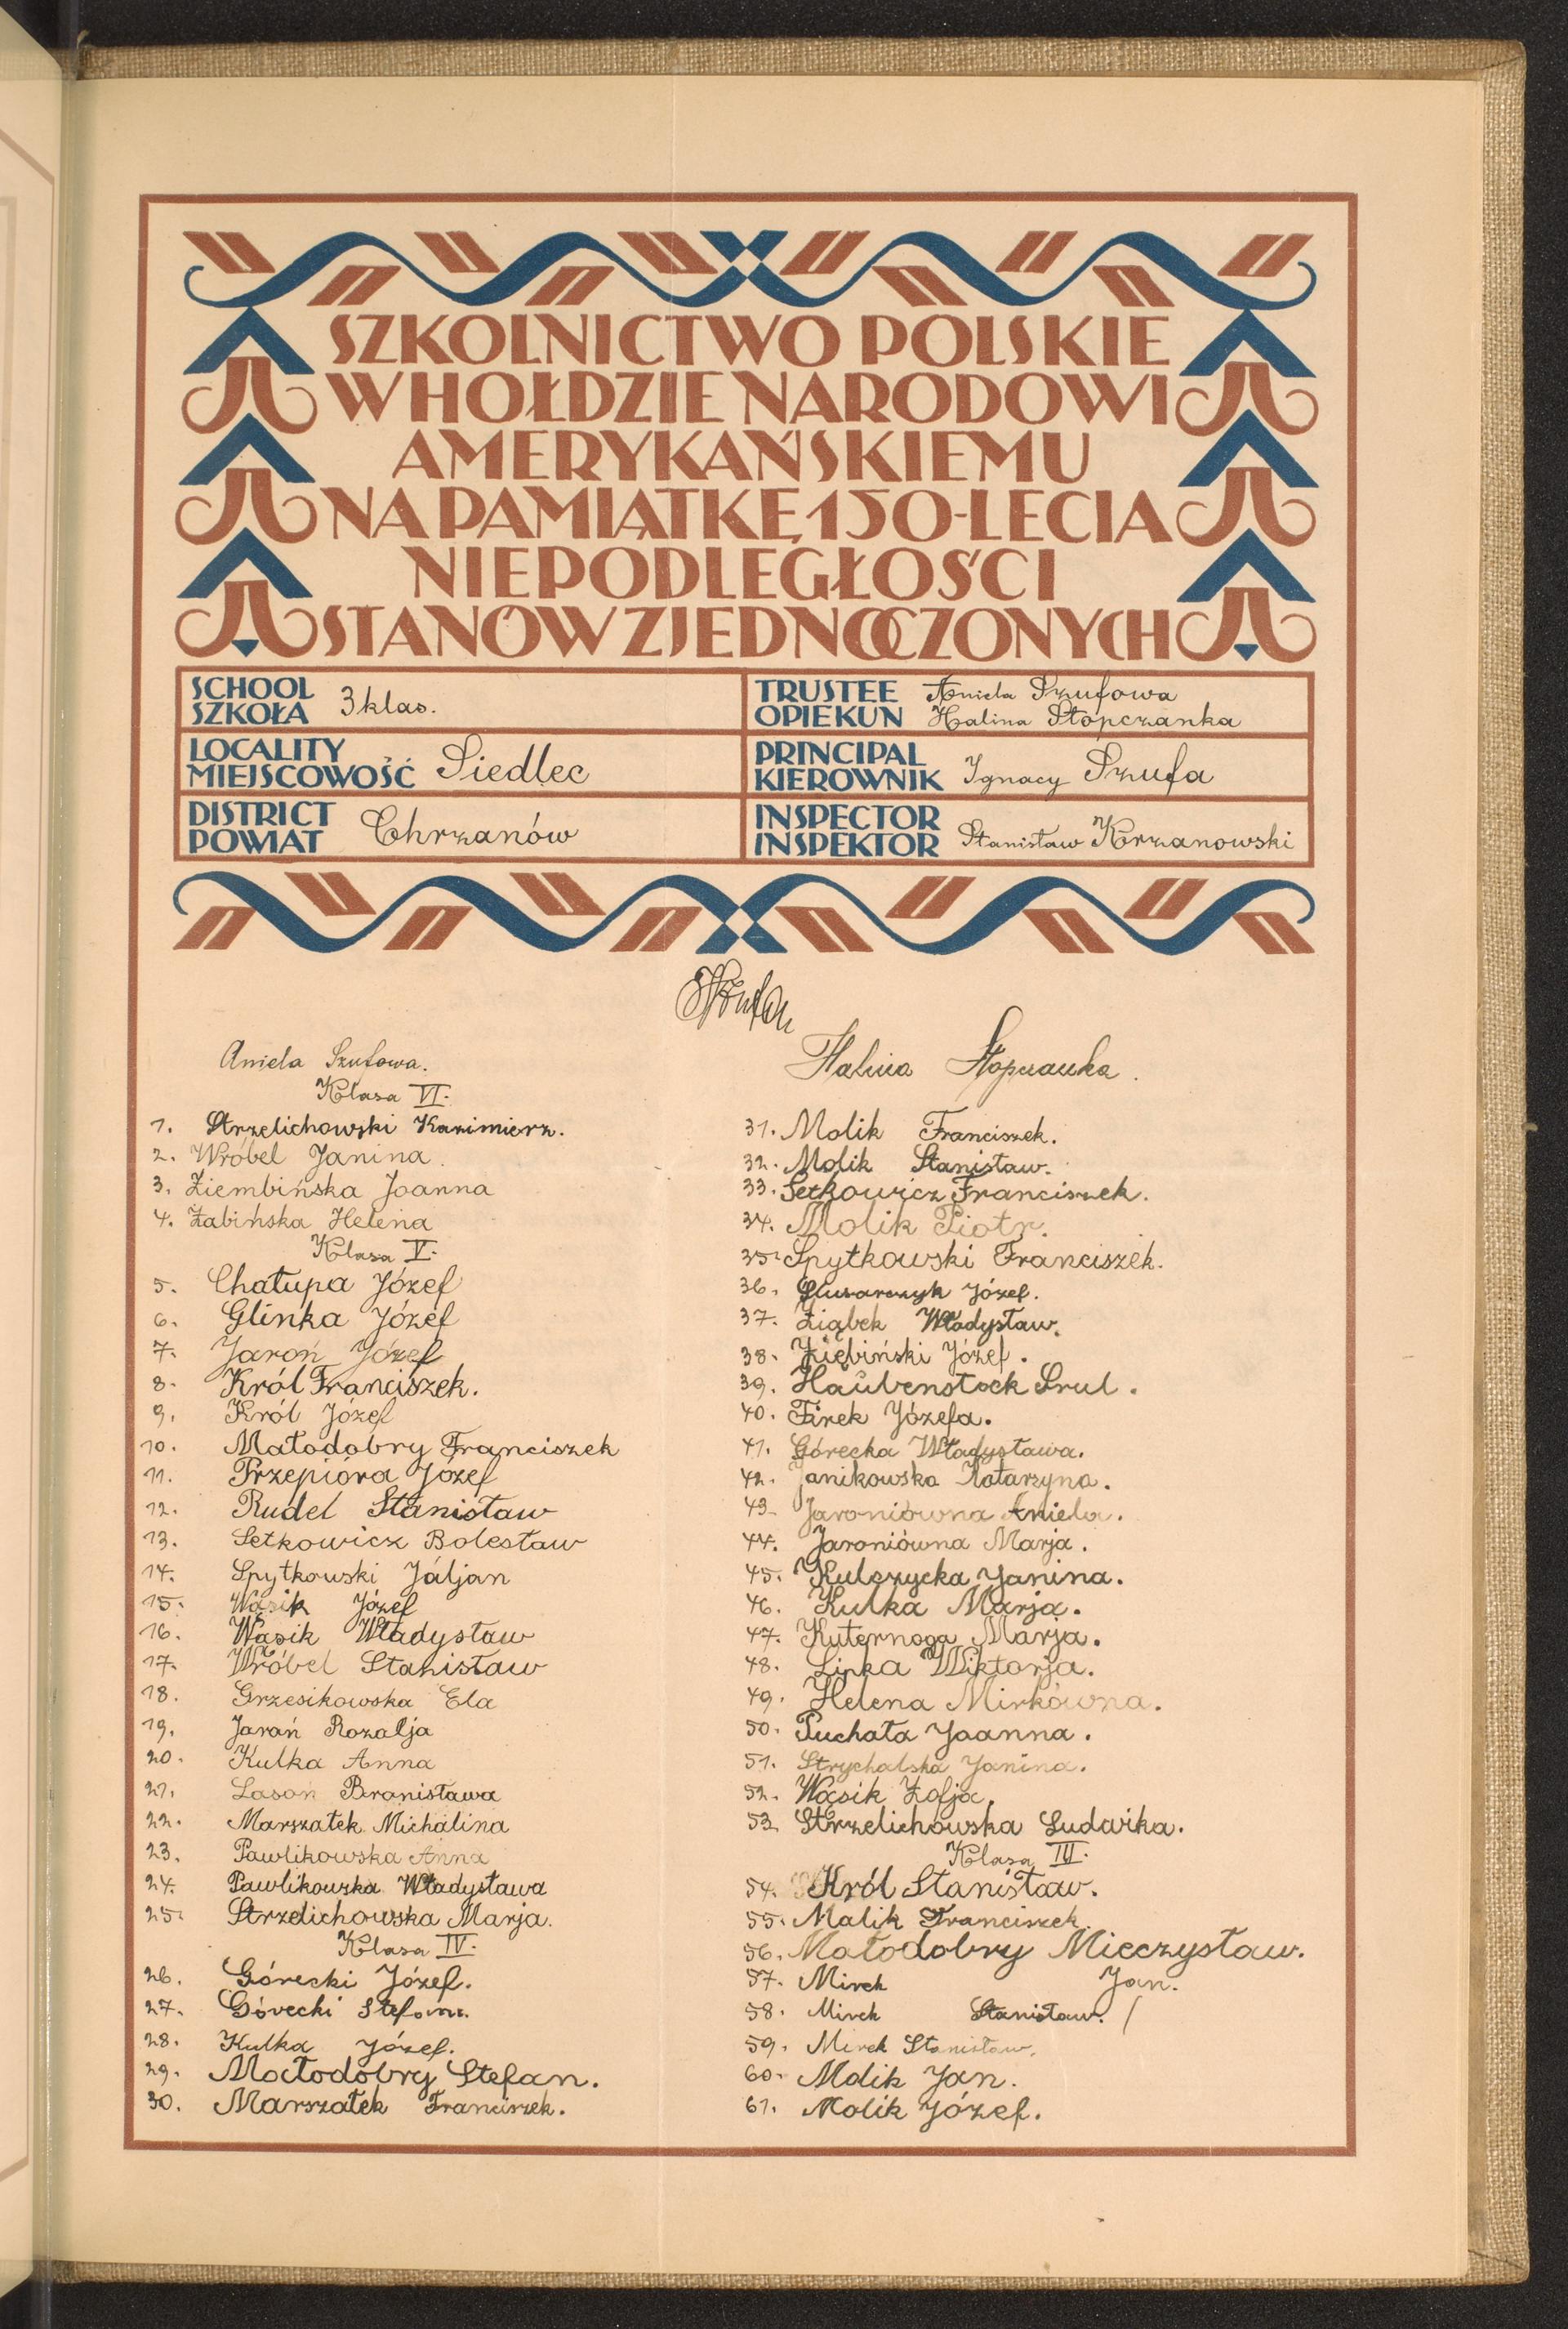 SZKOLNICTWO POLSKIE
W HOŁDZIE NARODOWI
AMERYKAŃSKIEMU
NA PAMIĄTKĘ 150-LECIA
NIEPODLEGŁOŚCI
STANÓW ZJEDNOCZONYCH
SCHOOL
SZKOŁA 3 klas.
TRUSTEE Aniela Szufowa
OPIEKUN Halina Stopczanka
LOCALITY
MIEJSCOWOŚĆ Siedlec
PRINCIPAL
KIEROWNIK Ignacy Szufa
DISTRICT
POWIAT Chrzanów
INSPECTOR
INSPEKTOR Stanisław Krzanowski
Aniela Szufowa.
Klasa VI.
1. Strzelichowski Kazimierz.
2. Wróbel Janina.
3. Ziembińska Joanna
4. Żabińska Helena
Klasa V.
5. Chałupa Józef
6. Glinka Józef
7. Jaroń Józef
8. Król Franciszek.
9. Król Józef
10. Małodobry Franciszek
11. Przepióra Józef
12. Rudel Stanisław
13. Setkowicz Bolesław
14. Spytkowski Juljan
15. Wąsik Józef
16. Wąsik Władysław
17. Wróbel Stanisław
18. Grzesikowska Ela
19. Jaroń Rozalja
20. Kulka Anna
21. Lasoń Bronisława
22. Marszałek Michalina
23. Pawlikowska Anna
24. Pawlikowska Władysława
25. Strzelichowska Marja.
Klasa IV.
26. Górecki Józef.
27. Górecki Stefan.
28. Kulka Józef.
29. Małodobry Stefan.
30. Marszałek Franciszek.
Halina Stopczanka.
31. Molik Franciszek.
32. Molik Stanisław.
33. Setkowicz Franciszek.
34. Molik Piotr.
35. Spytkowski Franciszek.
36. Ślusarczyk Józef.
37. Ziąbek Władysław.
38. Ziębiński Józef.
39. Haubenstock Srul.
40. Firek Józefa.
41. Górecka Władysława.
42. Janikowska Katarzyna.
43. Jaroniówna Aniela.
44. Jaroniówna Marja.
45. Kulczycka Janina.
46. Kulka Marja.
47. Kuternoga Marja.
48. Lipka Wiktorja.
49. Helena Mirkówna.
50. Puchała Joanna.
51. Strychalska Janina.
52. Wąsik Zofja.
53. Strzelichowska Ludwika.
Klasa III.
54. Król Stanisław.
55. Malik Franciszek.
56. Małodobry Mieczysław.
57. Mirek Jan.
58. Mirek Stanisław.
59. Mirek Stanisław.
60. Molik Jan.
61. Molik Józef.